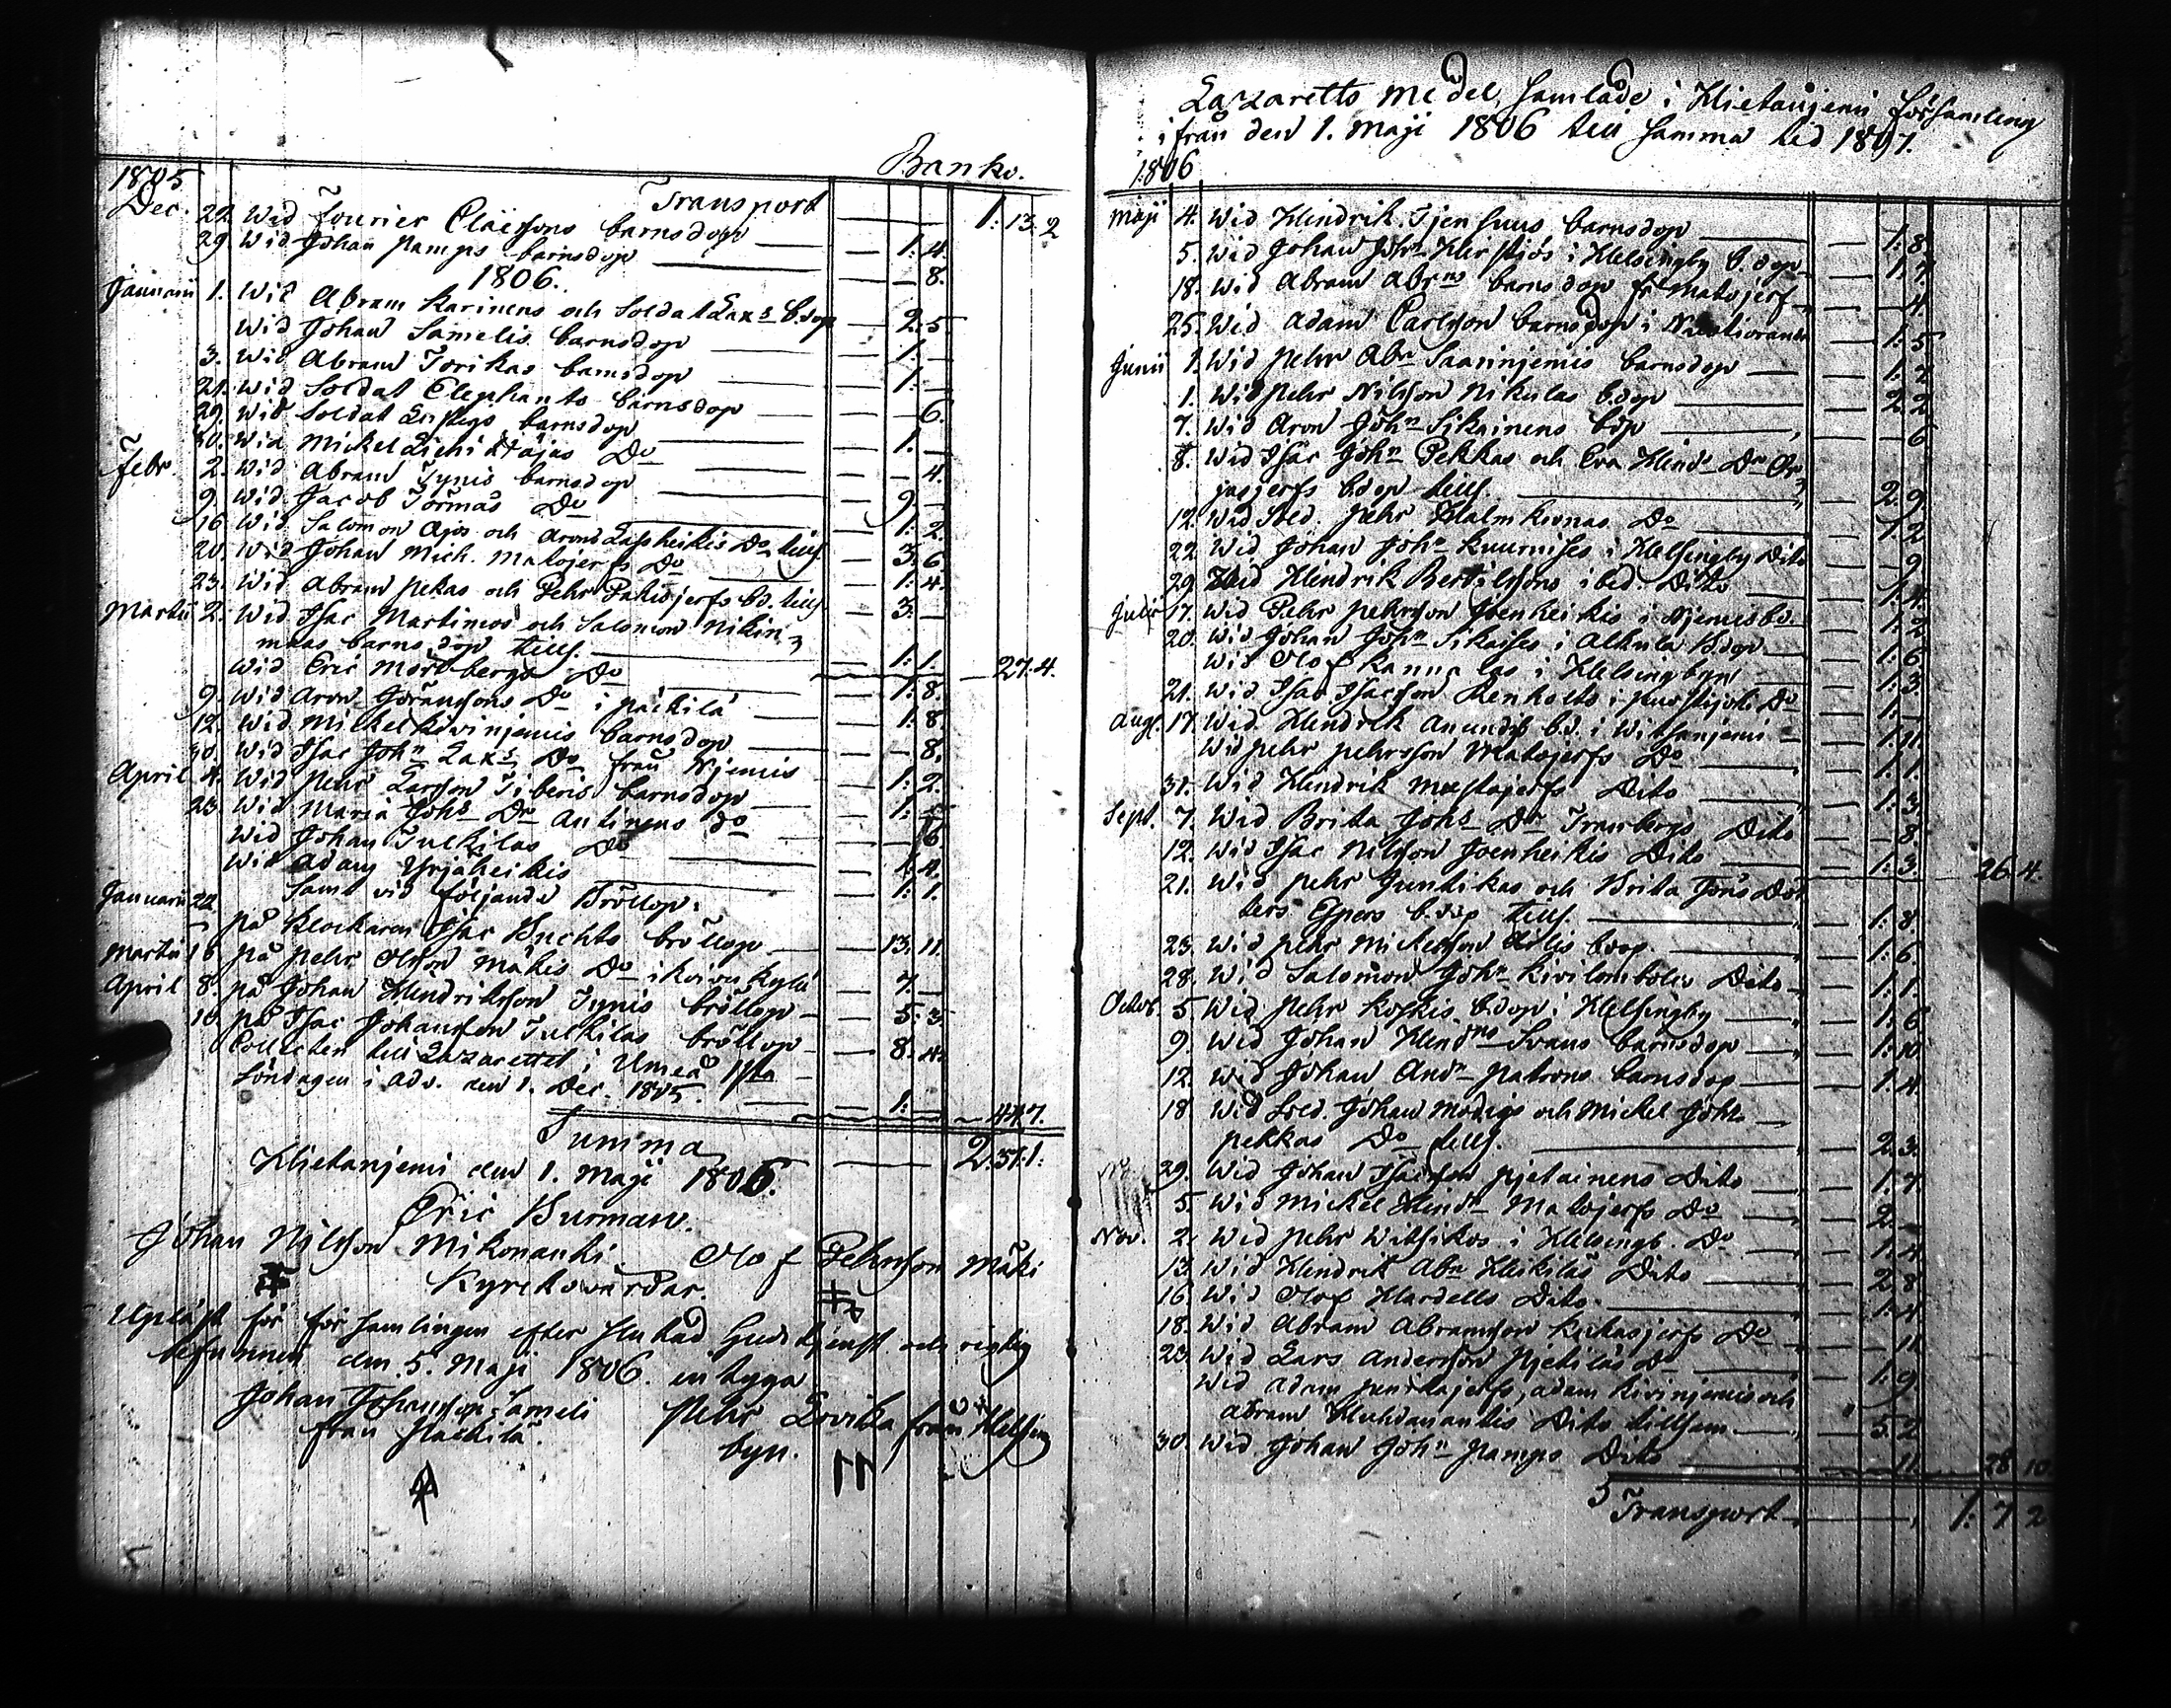 Banko.
1805 Transport 1: 13. 2
Dec. 22. Wid Fourier Claessons barnsdop — 1: 4.
29. Wid Johan Pamps barnsdop — 8.
1806.
Januarii 1. Wid Abram Karinens och Soldat Lax's b.dop — 2: 5.
Wid Johan Samelis barnsdop — 1: —
3. Wid Abram Torikas barnsdop — 1: —
21. Wid Soldat Elephants barnsdop — 6.
29. Wid Soldat barnsdop — 1. —
30. Wid Mickel Do — 4.
Febr. 2. Wid Abram Tynis barnsdop — 9. —
9. Wid Jacob Törmäs Do — 1: 2.
16. Wid Salomon Ajos och Arons Lassheikis Do tills. — 3. 6.
20. Wid Johan Mich. Matojerfs Do — 1: 4.
23. Wid Abram Pekas och Pehr Pakisjerfs bd. tills. — 3. —
Martii 2. Wid Isac Martimos och Salomon Nikin
maas barnsdop tills. — 1: 1.
Wid Eric Mörtbergs Do — 1: 8. — 27: 4.
9. Wid Aron Göranssons Do i Päckilä — 1: 8.
12. Wid Mickel Kivinjemis barnsdop — 8.
30. Wid Isac Johns Lax's Do från Njemis — 1: 2.
April 4. Wid Pehr Larsson Tiberis barnsdop — 1: 5
23. Wid Maria Johs Dr Antinens do — 6.
Wid Johan Tulkilas Do — 1: 4.
Wid Adam Yrjäheikis — 1: 1.
Samt vid följande Bröllop:
Januarii 20. på Klockaren Isac Buchts bröllop — 13. 11.
Martii 16. på Pehr Olsson Mäkis Do i Koivukylä — 7. —
April 8. på Johan Hendriksson Tynis bröllop — 5: 3.
10. på Isac Johansson Tulkilas bröllop — 8. 4.
Collecten till Lazarettet i Umeå 1sta
Söndagen i Adv. den 1. Dec. 1805. — 1: — 44: 7.
Summa — 2. 37. 1.
Hietanjemi den 1. Maji 1806.
Eric Burman.
Johan Nilsson Mikonanti Olof Pehrsson Mäki
Kyrckovärdar.
Upläst för församlingen efter slutad Gudstjenst och rigtig
befunnen den 5. Maji 1806. intyga
Johan Johansson Sameli Pehr Lovika från Helsing
från Päckilä. byn.
Lazaretts medel, samlade i Hietanjemi församling
ifrån den 1. Maji 1806 till samma tid 1807.
1806
Maji 4. Wid Hendrik Isjensuus barnsdop — 1: 8.
5. Wid Johan Johns i Helsingby b.dop — 1: 7.
18. Wid Abram Abrms barnsdop fr Matojerf — 4.
25. Wid Adam Carlsson barnsdop i — 1: 5
Junii 1. Wid Pehr Abr Saarinjemis barnsdop — 1: 2
1. Wid Pehr Nilsson Nikulas b.dop — 2 2
7. Wid Aron Johns Sikainens bdop — 6
8. Wid Isac Johns Pekkas och Eva Hends Dr
jasjerfs b.dop tills. — 2. 9.
12. Wid Sold. Pehr Malmkonas Do — 1: 2
22. Wid Johan Johns Kuurnises i Helsingby Dito — 9
29. Wid Hendrik Bertilssons ibid. Dito — 1: 4
Julii 17. Wid Pehr Pehrsson Joenheikis i Njemis bd. — 1: 2
20. Wid Johan Johns Sikaises i Alkula B.dop — 1: 6.
Wid Olof Kannalas i Helsingbyn — 1: 3.
21. Wid Isac Isacsson Do — 1: —
Aug. 17. Wid Hendrik Anundis bd. i Witsanjemi — 1: 11.
Wid Pehr Pehrsson Matojerfs Do — 1: 1.
31. Wid Hendrik Mustajerfs Dito — 1: 3.
Sept. 7. Wid Brita Johs Dr Tranbergs Dito — 8.
12. Wid Isac Nilsson Joenheikis Dito — 1: 3. — 26. 4.
21. Wid Pehr Juntikas och Brita Jöns Döt
ters Espers b.dop tills. — 1: 8
23. Wid Pehr Mickelsson bdop. — 1: 6.
28. Wid Salomon Johns Kivilombolos Dito — 1: 1.
Octob. 5. Wid Pehr Koskis b.dop i Helsingby — 1: 6.
9. Wid Johan Hendns Svans barnsdop — 1: 10.
12. Wid Johan Andrs Patrons barnsdop — 1: 4.
18. Wid Sold. Johan Modigs och Mickel Johs
Pekkas Do tills. — 2. 3.
29. Wid Johan Isacsson Pjetainens Dito — 1: 7.
5. Wid Mickel Hends Matojerfs Do — 2. —
Nov. 2. Wid Pehr Witsikos i Helsingb. Do — 1: 4.
13. Wid Hendrik Abr Heikiläs Dito — 2 8
16. Wid Olof Hardells Dito — 1: 4
18. Wid Abram Abramsson Kukasjerfs Do — 11
23. Wid Lars Andersson Pjetiläs Do — 1: 9.
Wid Adam Pentäjerfs, Adam Kivinjemis och
Abram Huhdanantis Dito tillsam — 5. 2
30. Wid Johan Johns Pamps Dito — 11. — 28. 10.
Transport — 1: 7 2